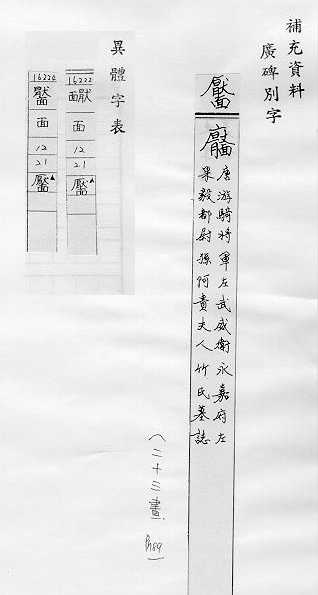 補充資料
廣碑別字
靨
唐游騎將軍左武威衛永嘉府左
果毅都尉孫阿貴夫人竹氏墓誌
(二十三畫 P.789)
異體字表
16222
面
12
21
靨▲
16222
面
12
21
靨▲